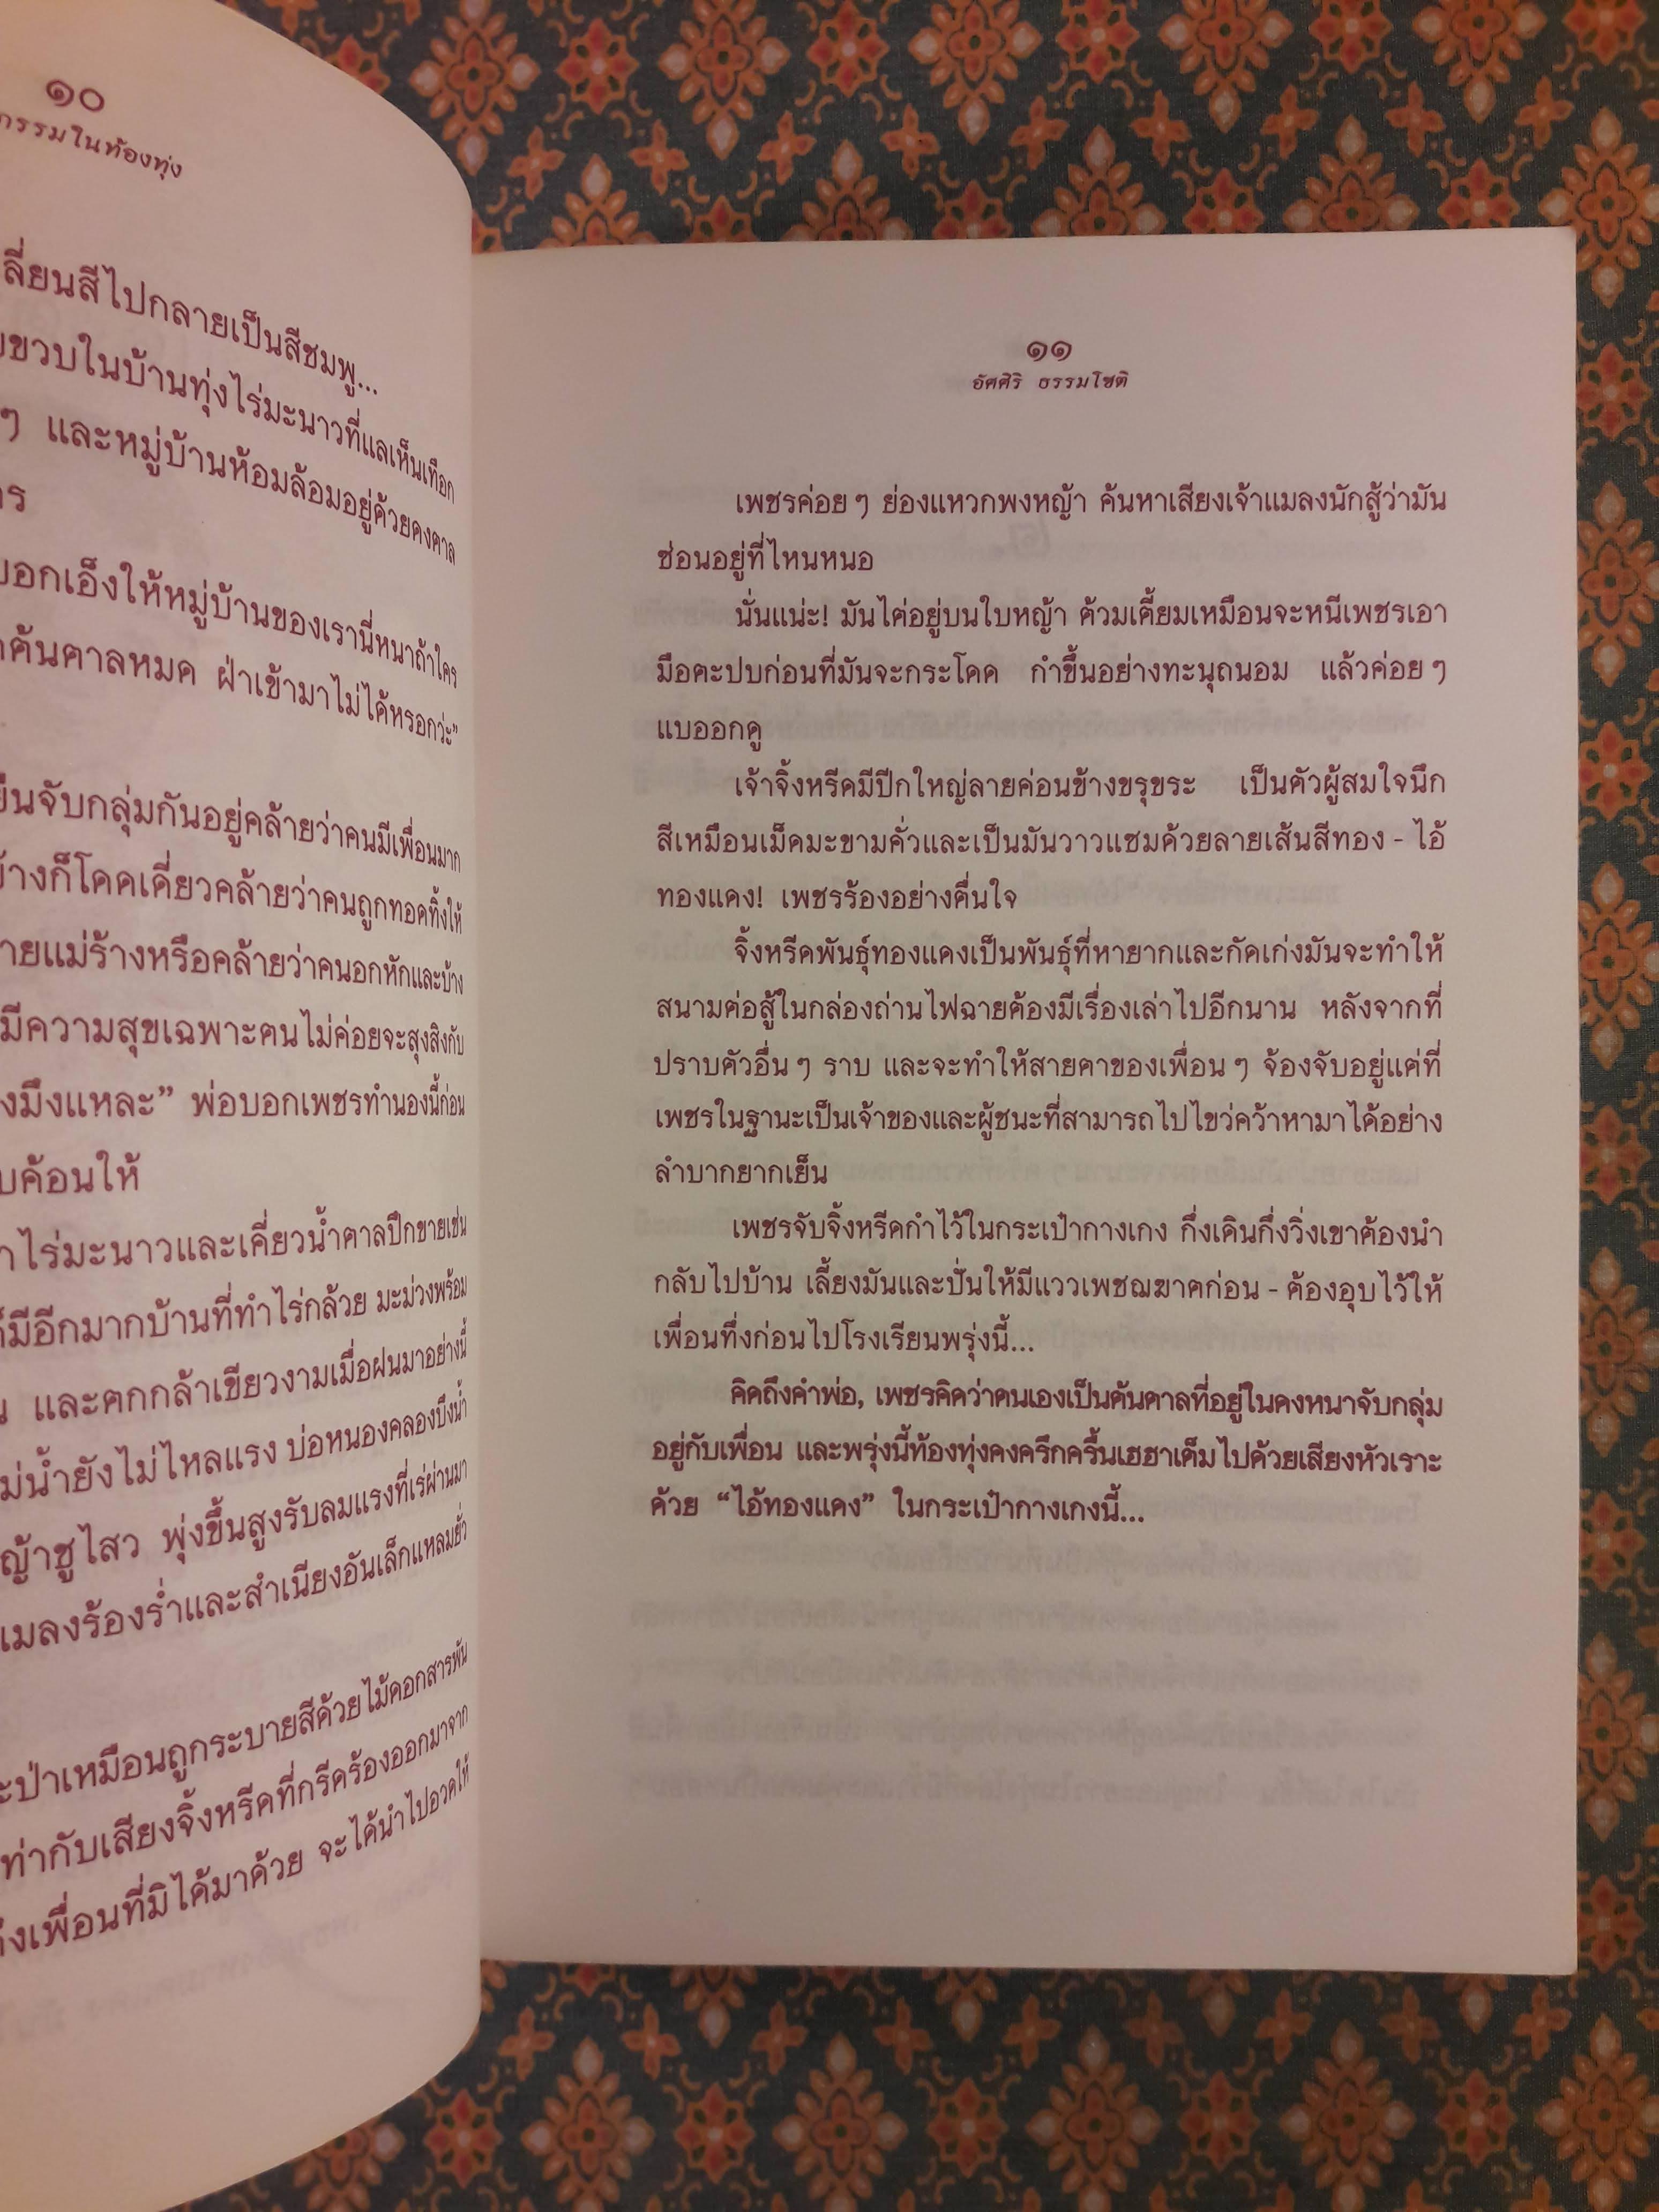 ๑๐
กรรมในท้องทุ่ง
ลี่ยนสีไปกลายเป็นสีชมพู...
ขวบในบ้านทุ่งไร่มะนาวที่แลเห็นเทือก
ๆ และหมู่บ้านห้อมล้อมอยู่ด้วยดงตาล
บอกเอ็งให้หมู่บ้านของเรานี่หนาถ้าใคร
ต้นตาลหมด ฝ่าเข้ามาไม่ได้หรอกว่ะ”
ยืนจับกลุ่มกันอยู่คล้ายว่าคนมีเพื่อนมาก
บ้างก็โดดเดี่ยวคล้ายว่าคนถูกทอดทิ้งให้
ายแม่ร้างหรือคล้ายว่าคนอกหักและบ้าง
มีความสุขเฉพาะตนไม่ค่อยจะสุงสิงกับ
งมึงแหละ” พ่อบอกเพชรทำนองนี้ก่อน
บค้อนให้
ไร่มะนาวและเคี่ยวน้ำตาลปึกขายเช่น
มีอีกมากบ้านที่ทำไร่กล้วย มะม่วงพร้อม
และตกกล้าเขียวงามเมื่อฝนมาอย่างนี้
ม่น้ำยังไม่ไหลแรง บ่อหนองคลองบึงน้ำ
ญ้าชูไสว พุ่งขึ้นสูงรับลมแรงที่เร่ผ่านมา
แมลงร้องร่ำและสำเนียงอันเล็กแหลมยั่ว
ะป่าเหมือนถูกระบายสีด้วยไม้ดอกสารพัน
ท่ากับเสียงจิ้งหรีดที่กรีดร้องออกมาจาก
ถึงเพื่อนที่มิได้มาด้วย จะได้นำไปอวดให้
๑๑
อัศศิริ ธรรมโชติ
เพชรค่อย ๆ ย่องแหวกพงหญ้า ค้นหาเสียงเจ้าแมลงนักสู้ว่ามัน
ซ่อนอยู่ที่ไหนหนอ
นั่นแน่ะ! มันไต่อยู่บนใบหญ้า ต้วมเตี้ยมเหมือนจะหนีเพชรเอา
มือตะปบก่อนที่มันจะกระโดด กำขึ้นอย่างทะนุถนอม แล้วค่อย ๆ
แบออกดู
เจ้าจิ้งหรีดมีปีกใหญ่ลายค่อนข้างขรุขระ เป็นตัวผู้สมใจนึก
สีเหมือนเม็ดมะขามคั่วและเป็นมันวาวแซมด้วยลายเส้นสีทอง - ไอ้
ทองแดง! เพชรร้องอย่างตื่นใจ
จิ้งหรีดพันธุ์ทองแดงเป็นพันธุ์ที่หายากและกัดเก่งมันจะทำให้
สนามต่อสู้ในกล่องถ่านไฟฉายต้องมีเรื่องเล่าไปอีกนาน หลังจากที่
ปราบตัวอื่น ๆ ราบ และจะทำให้สายตาของเพื่อน ๆ จ้องจับอยู่แต่ที่
เพชรในฐานะเป็นเจ้าของและผู้ชนะที่สามารถไปไขว่คว้าหามาได้อย่าง
ลำบากยากเย็น
เพชรจับจิ้งหรีดกำไว้ในกระเป๋ากางเกง กึ่งเดินกึ่งวิ่งเขาต้องนำ
กลับไปบ้าน เลี้ยงมันและปั่นให้มีแววเพชฌฆาตก่อน - ต้องอุบไว้ให้
เพื่อนทึ่งก่อนไปโรงเรียนพรุ่งนี้...
คิดถึงคำพ่อ, เพชรคิดว่าตนเองเป็นต้นตาลที่อยู่ในดงหนาจับกลุ่ม
อยู่กับเพื่อน และพรุ่งนี้ท้องทุ่งคงครึกครื้นเฮฮาเต็มไปด้วยเสียงหัวเราะ
ด้วย “ไอ้ทองแดง” ในกระเป๋ากางเกงนี้...